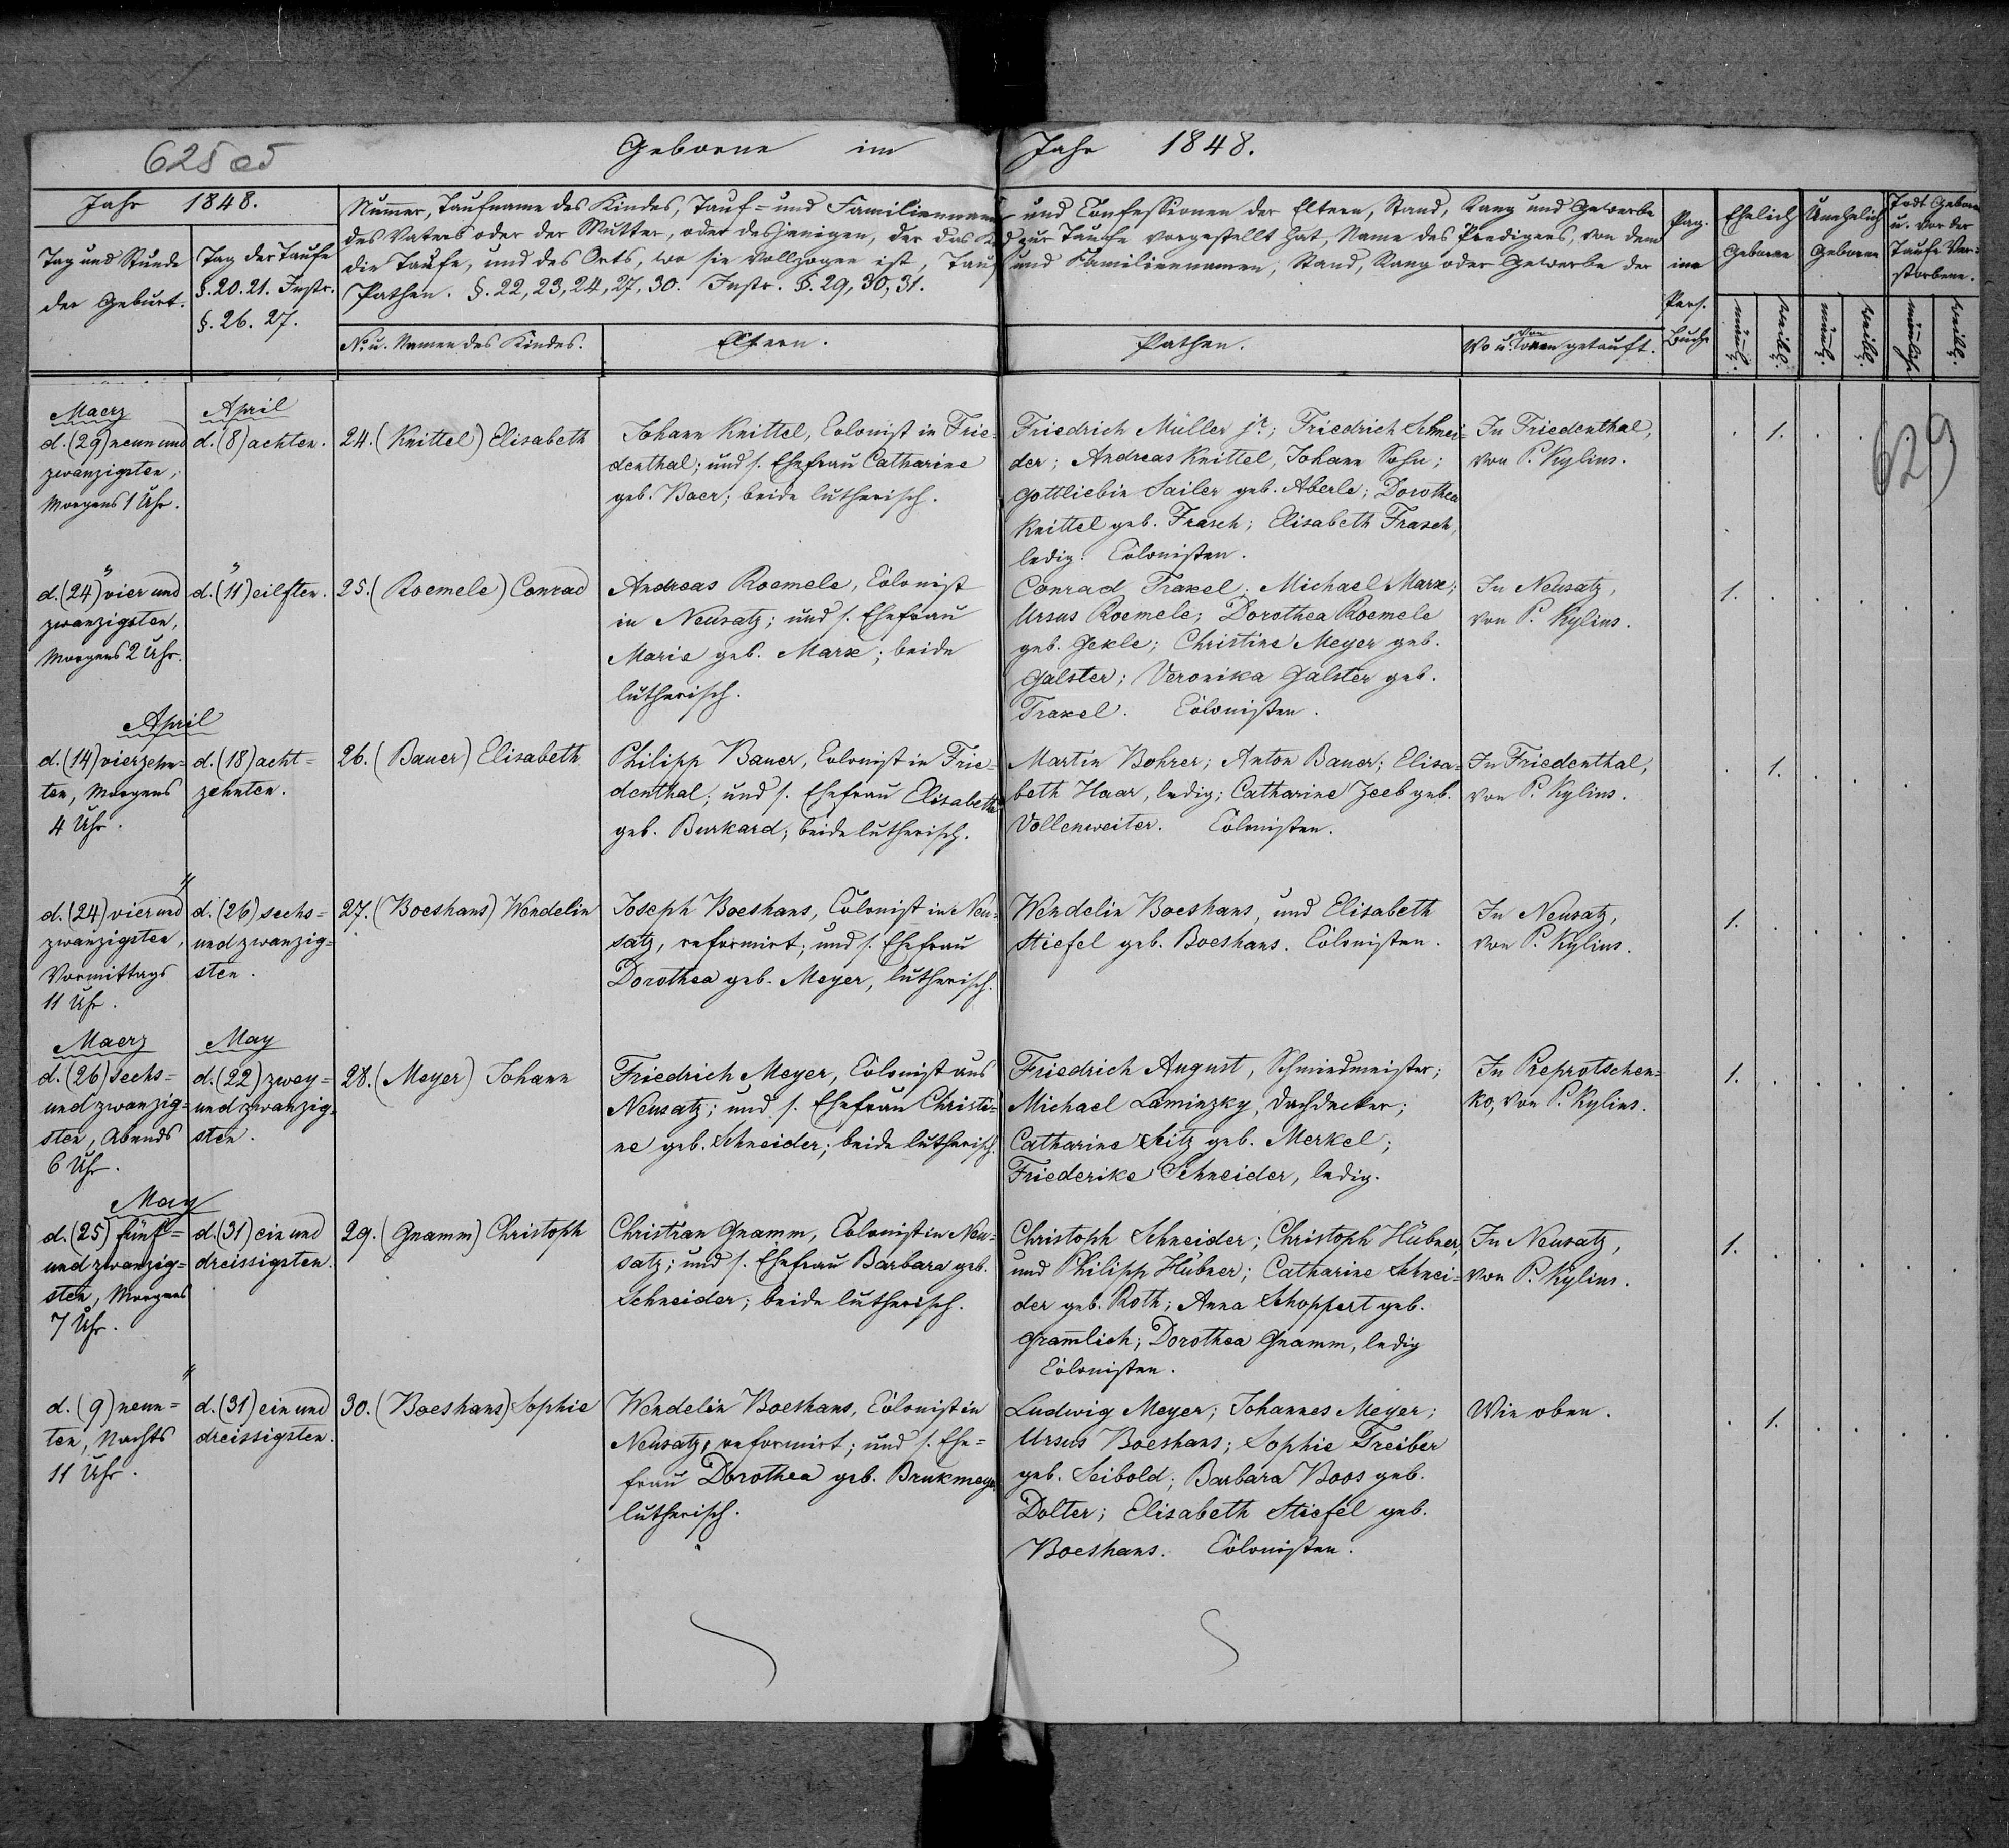 625 об
Geborne im Jahr 1848.
Jahr 1848.
Tag und Stunde
der Geburt.
Tag der Taufe
§. 20. 21. Instr.
§. 26. 27.
Numer, Taufname des Kindes, Tauf= und Familiennamen und Confessionen der Eltern, Stand, Rang und Gewerbe
des Vaters oder der Mutter, oder desjenigen, der das Kind zur Taufe vorgestellt hat, Name des Predigers, von dem
die Taufe, und des Orts, wo sie vollzogen ist, Tauf und Familiennamen, Stand, Rang oder Gewerbe der
Pathen. §. 22, 23, 24, 27, 30. Instr. §. 29, 30, 31.
No. u. Namen des Kindes.
Eltern.
Pathen.
Wo u. von wem getauft.
Pag.
im
Pers.
Buche
Ehelich
Geborne
Unehelich
Geborne
Todt Geborne
u. vor der
Taufe Ver=
storbene.
männl.
weibl.
männl.
weibl.
männlich
weibl.
629
Maerz
d. (29) neun und
zwanzigsten,
Morgens 1 Uhr.
April
d. (8) achten.
24. (Knittel) Elisabeth
Johann Knittel, Colonist in Frie=
denthal; und s. Ehefrau Catharine
geb. Baer; beide lutherisch.
Friedrich Müller jr.; Friedrich Schnei=
der; Andreas Knittel, Johann Sohn;
Gottliebin Sailer geb. Aberle; Dorothea
Knittel geb. Frasch; Elisabeth Frasch,
ledig. Colonisten.
In Friedenthal,
von P. Kylius.
1.
"
d. (24) vier und
zwanzigsten,
Morgens 2 Uhr.
"
d. (11) eilften.
25. (Roemele) Conrad
Andreas Roemele, Colonist
in Neusatz; und s. Ehefrau
Marie geb. Marx; beide
lutherisch.
Conrad Traxel; Michael Marx;
Ursus Roemele; Dorothea Roemele
geb. Jekle; Christine Meyer geb.
Galster; Veronika Galster geb.
Traxel. Colonisten.
In Neusatz,
von P. Kylius.
1.
April
d. (14) vierzehn=
ten, Morgens
4 Uhr.
d. (18) acht=
zehnten.
26. (Bauer) Elisabeth
Philipp Bauer, Colonist in Frie=
denthal; und s. Ehefrau Elisabeth
geb. Burkard; beide lutherisch.
Martin Bohrer; Anton Bauer; Elisa=
beth Haar, ledig; Catharine Zeeb geb.
Vollenweiter. Colonisten.
In Friedenthal,
von P. Kylius.
1.
"
d. (24) vier und
zwanzigsten,
Vormittags
11 Uhr.
d. (26) sechs=
und zwanzig=
sten.
27. (Boeshans) Wendelin
Joseph Boeshans, Colonist in Neu=
satz, reformirt; und s. Ehefrau
Dorothea geb. Meyer, lutherisch.
Wendelin Boeshans, und Elisabeth
Stiefel geb. Boeshans. Colonisten.
In Neusatz,
von P. Kylius.
1.
Maerz
d. (26) sechs=
und zwanzig=
sten, Abends
6 Uhr.
May
d. (22) zwey=
und zwanzig=
sten.
28. (Meyer) Johann
Friedrich Meyer, Colonist aus
Neusatz; und s. Ehefrau Christi=
ne geb. Schneider; beide lutherisch.
Friedrich August, Schmiedmeister;
Michael Laminzky, Dachdecker;
Catharine Seitz geb. Merkel;
Friederike Schneider, ledig.
In Preprotschen=
ko, von P. Kylius.
1.
May
d. (25) fünf=
und zwanzig=
sten, Morgens
7 Uhr.
d. (31) ein und
dreissigsten.
29. (Gnamm) Christoph
Christian Gnamm, Colonist in Neu=
satz; und s. Ehefrau Barbara geb.
Schneider; beide lutherisch.
Christoph Schneider; Christoph Hübner,
und Philipp Hübner; Catharine Schnei=
der geb. Roth; Anna Schoppert geb.
Gramlich; Dorothea Gnamm, ledig
Colonisten.
In Neusatz,
von P. Kylius.
1.
"
d. (9) neun=
ten, Nachts
11 Uhr.
d. (31) ein und
dreissigsten.
30. (Boeshans) Sophie
Wendelin Boeshans, Colonist in
Neusatz, reformirt; und s. Ehe=
frau Dorothea geb. Brukmeyer
lutherisch.
Ludwig Meyer; Johannes Meyer;
Ursus Boeshans; Sophie Treiber
geb. Seibold; Barbara Boos geb.
Dolter; Elisabeth Stiefel geb.
Boeshans. Colonisten.
Wie oben.
1.